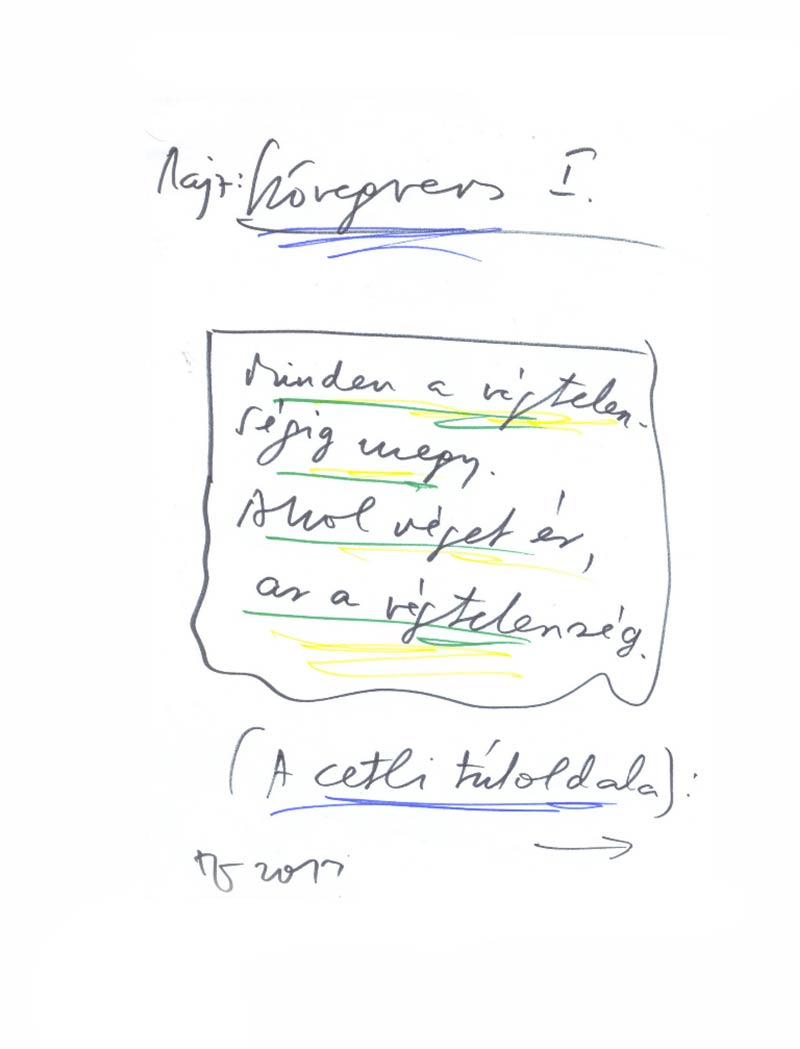 Rajz: Szövegvers I.
Minden a végtelen-
ségig megy.
Ahol véget ér,
az a végtelenség.
(A cetli túloldala):
2017